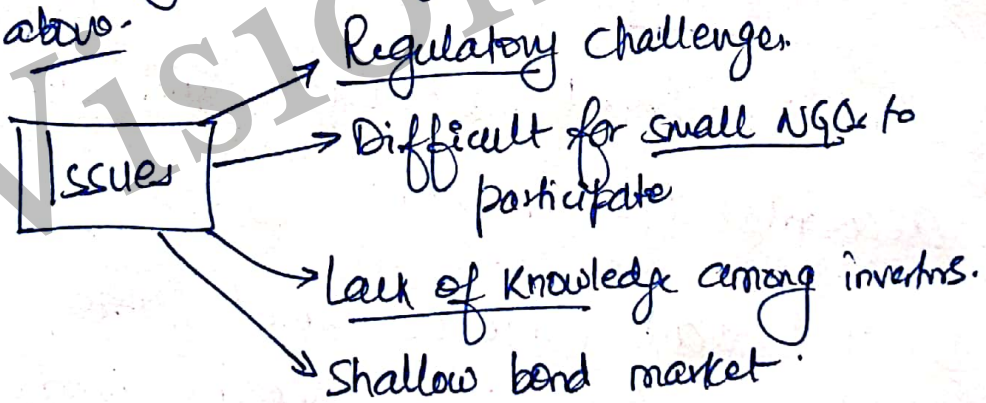 above.
Regulatory Challenges.
Issues
Difficult for small NGOs to
participate
Lack of Knowledge among investors.
Shallow bond market.
Vision